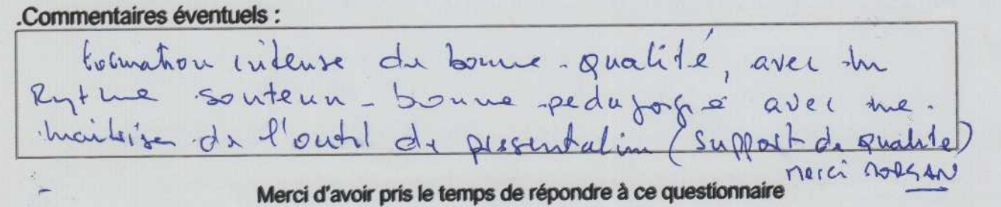 .Commentaires éventuels :
formation intense de bonne qualité, avec un
Rythme soutenu - bonne pedagogie avec une
maitrise de l'outil de présentation (support de qualité)
merci MORGAN
Merci d'avoir pris le temps de répondre à ce questionnaire